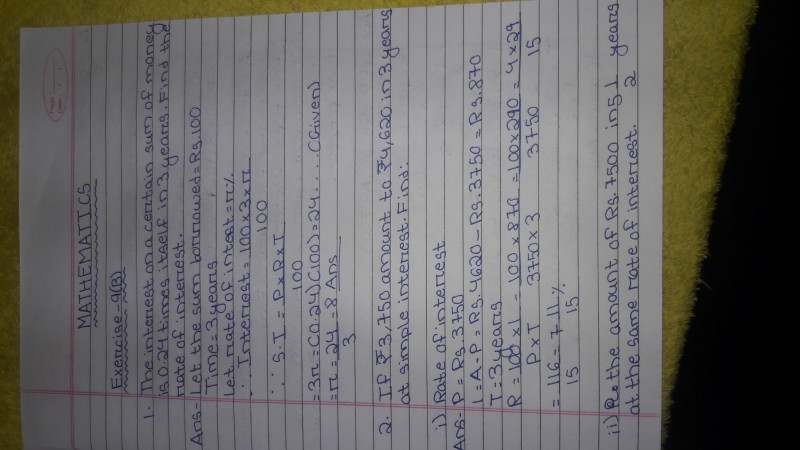 MATHEMATICS
Exercise-9(B)
1. The interest on a certain sum of money
is 0.24 times itself in 3 years. Find the
rate of interest.
Ans- Let the sum borrowed = Rs.100
Time = 3 years
Let rate of intest = r%
∴ Interest = 100 x 3 x r
100
∵ S.I = P x R x T
100
= 3r = (0.24)(100) = 24 .... (Given)
= r = 24 = 8 Ans
3
2. If ₹3,750 amount to ₹4,620 in 3 years
at simple interest. Find:
i) Rate of interest
Ans- P = Rs. 3750
I = A - P = Rs. 4620 - Rs. 3750 = Rs. 870
T = 3 years
R = 100 x I = 100 x 870 = 100 x 290 = 4 x 29
P x T 3750 x 3 3750 15
= 116 = 7 11 %
15 15
ii) the amount of Rs. 7500 in 5 1 years
2
at the same rate of interest.